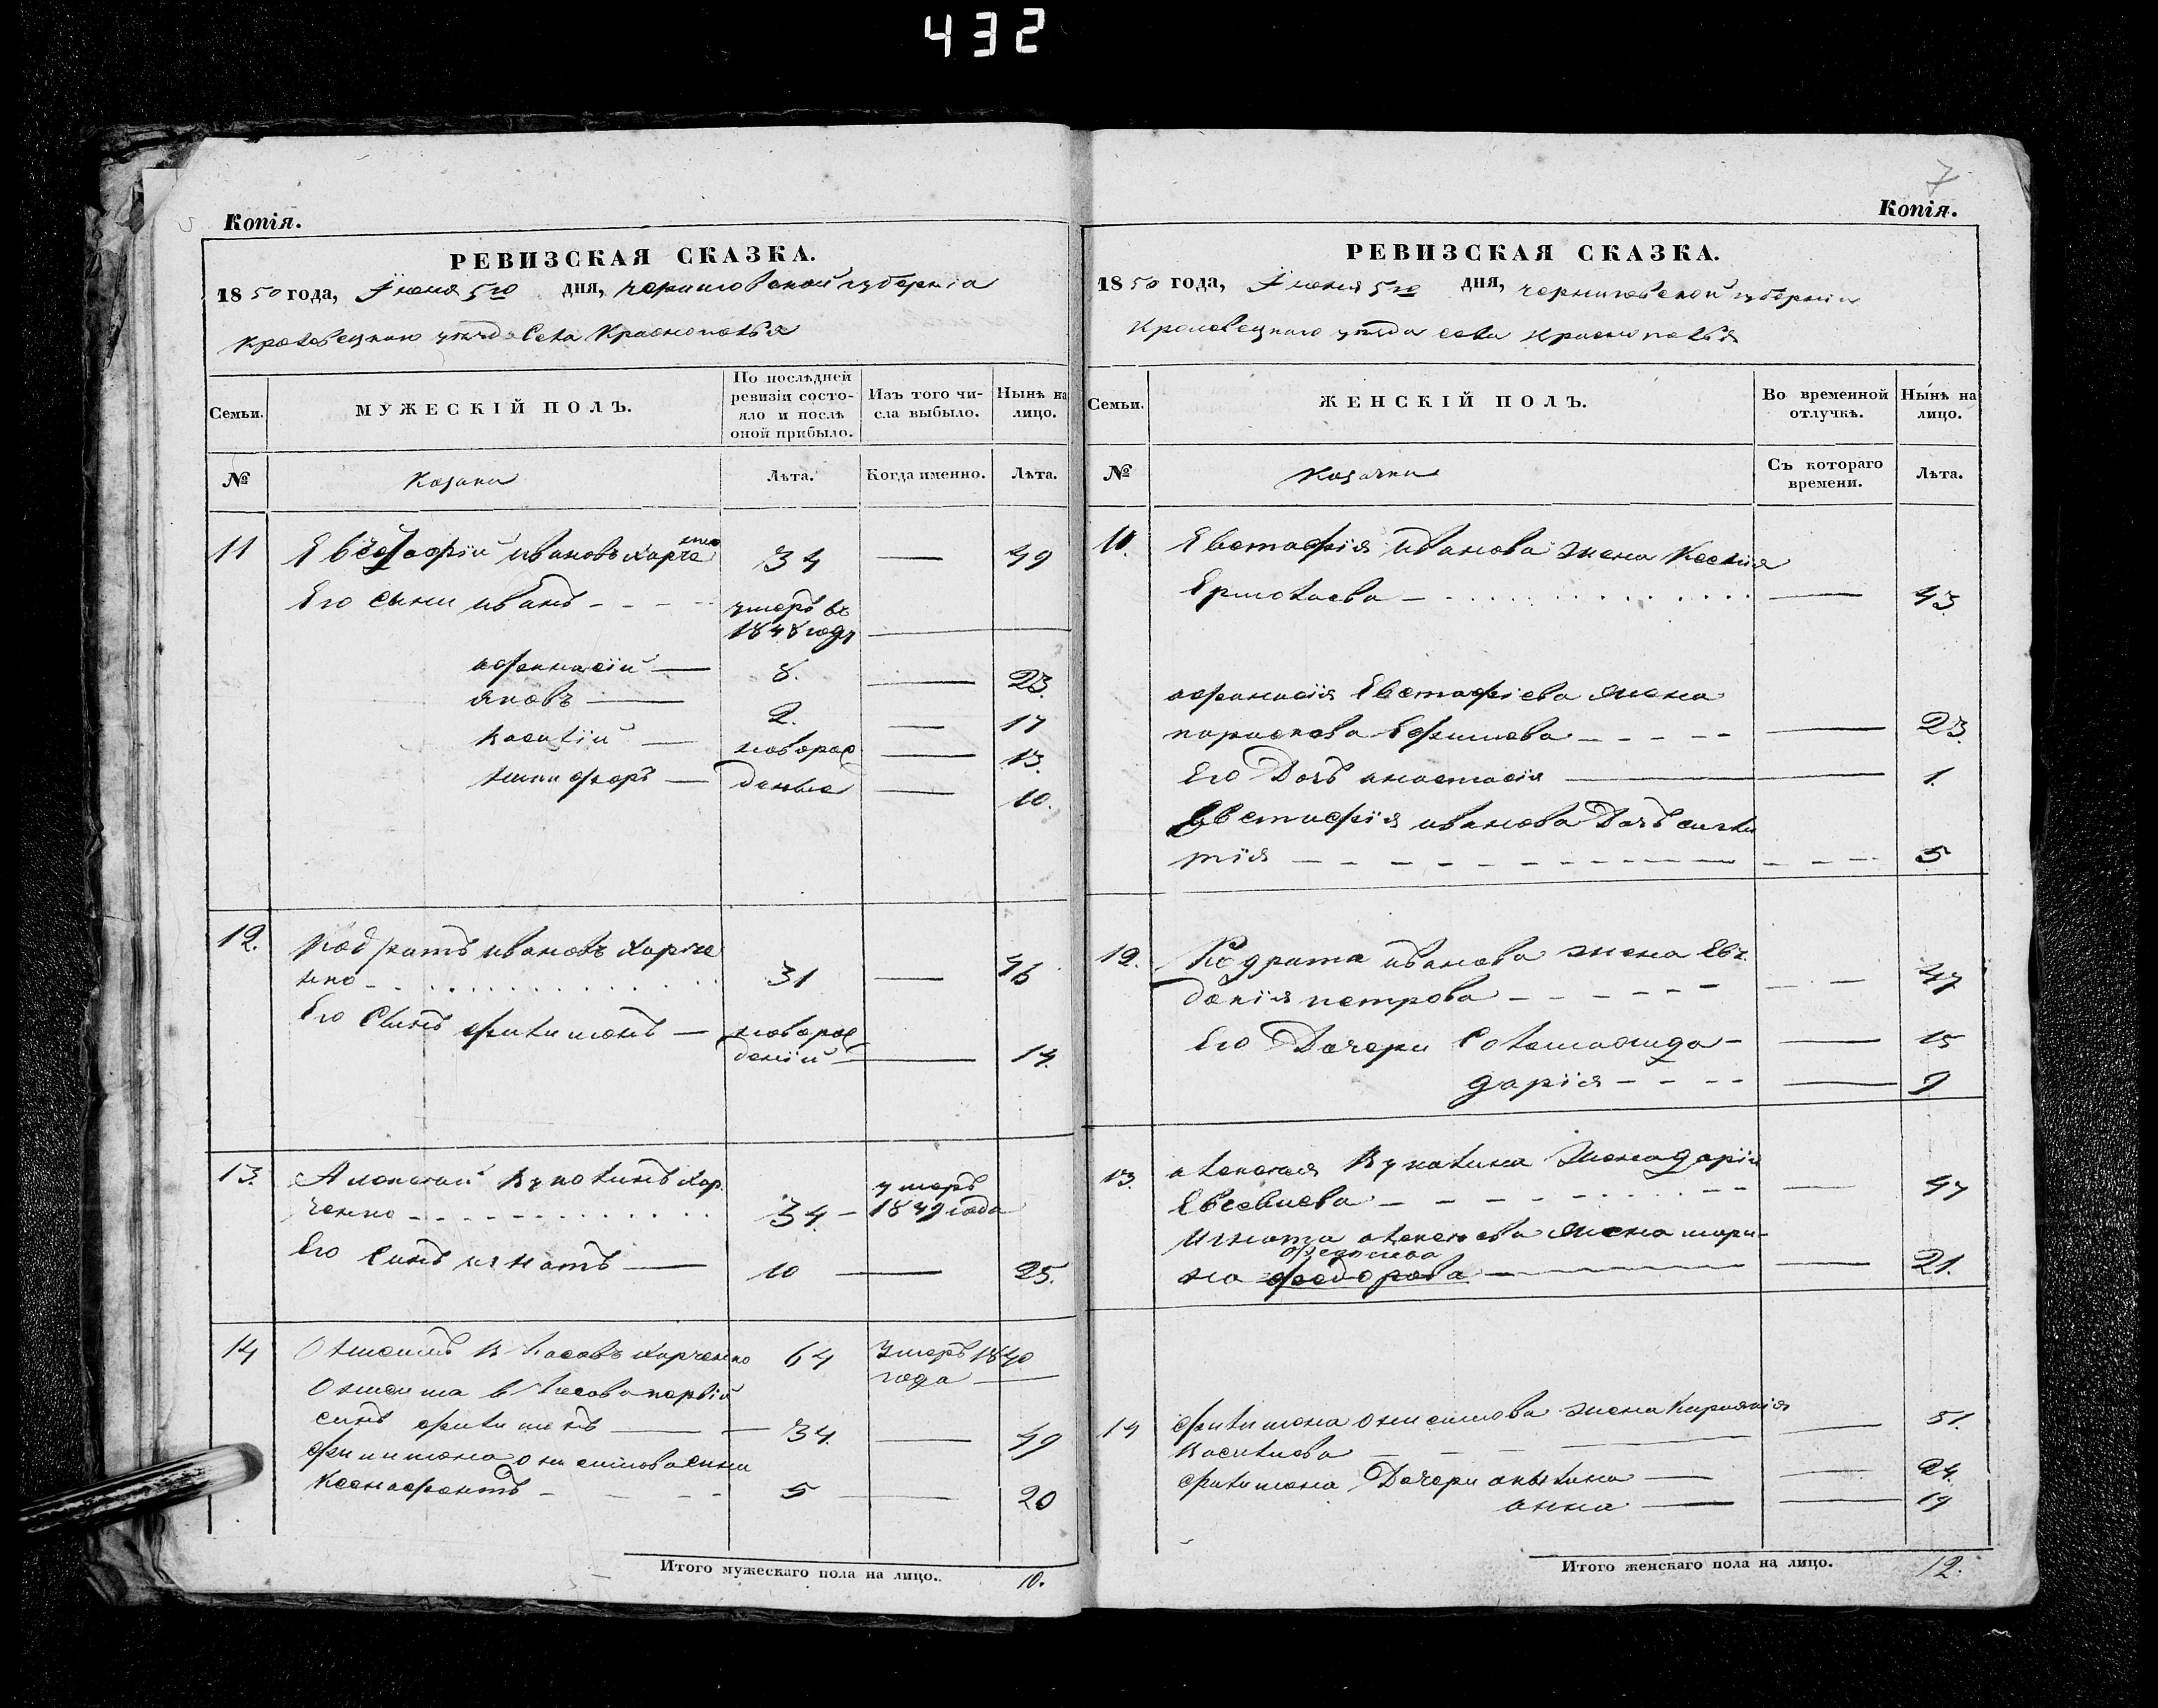 432
7
Копія.
РЕВИЗСКАЯ СКАЗКА.
1850 года, Іюня 5го дня, черниговской губерніи
Кролевецкаго уѣзда Села Краснополья
Семьи.
МУЖЕСКІЙ ПОЛЪ.
По послѣдней ревизіи состо-
яло и послѣ
оной прибыло.
Изъ того чи-
сла выбыло.
Нынѣ на
лицо.
№
Козаки
Лѣта.
Когда именно.
Лѣта.
11 Евстафій ивановъ Харченко 34 — 49
Его сыни иванъ умеръ въ
1848 году
афанасій — 8. — 23.
яковъ — 2. — 17
василій — новорож — 13.
никифоръ — деные — 10.
12. Кодратъ ивановъ Харче
нко 31 — 46
Его Синъ филимонъ — новорож
деній — 14.
13. Алексей Вуколинъ Хар.
ченко 34 — умеръ
1849 года
Его Синъ игнатъ — 10 — 25.
14 Онисимъ Власовъ Харченко 64 умеръ 1840
года —
Онисима Власова первій
синъ филимонъ — 34. — 49
филимона онисимова сини
Ксенофонтъ — 5 — 20
Итого мужескаго пола на лицо. 10.
Копія.
РЕВИЗСКАЯ СКАЗКА.
1850 года, Іюня 5го дня, черниговской губерніи
Кролевецкаго уѣзда села Краснополья
Семьи.
ЖЕНСКІЙ ПОЛЪ.
Во временной
отлучкѣ.
Нынѣ на
лицо.
№
Козачки
Съ котораго
времени.
Лѣта.
11. Евстафія иванова жена Ксенія
Ермолаева — 43.
афанасія Евстафіева жена
параскева Ефимова — 23.
Его Дочъ анастасія — 1.
Евстафія иванова Дочъ
5
12. Кодрата иванова жена Евъ
докія петрова — 47
Его Дочери Соломонида — 15
дарія — 9
13. алексея Вуколина жена дарія
Евсевиева — 47
Игната алексеева жена мари-
на федорова — 21.
14 филимона онисимова жена Киріякія 51.
Василиева
филимона Дочери акилина — 24.
анна — 19
Итого женскаго пола на лицо. 12.